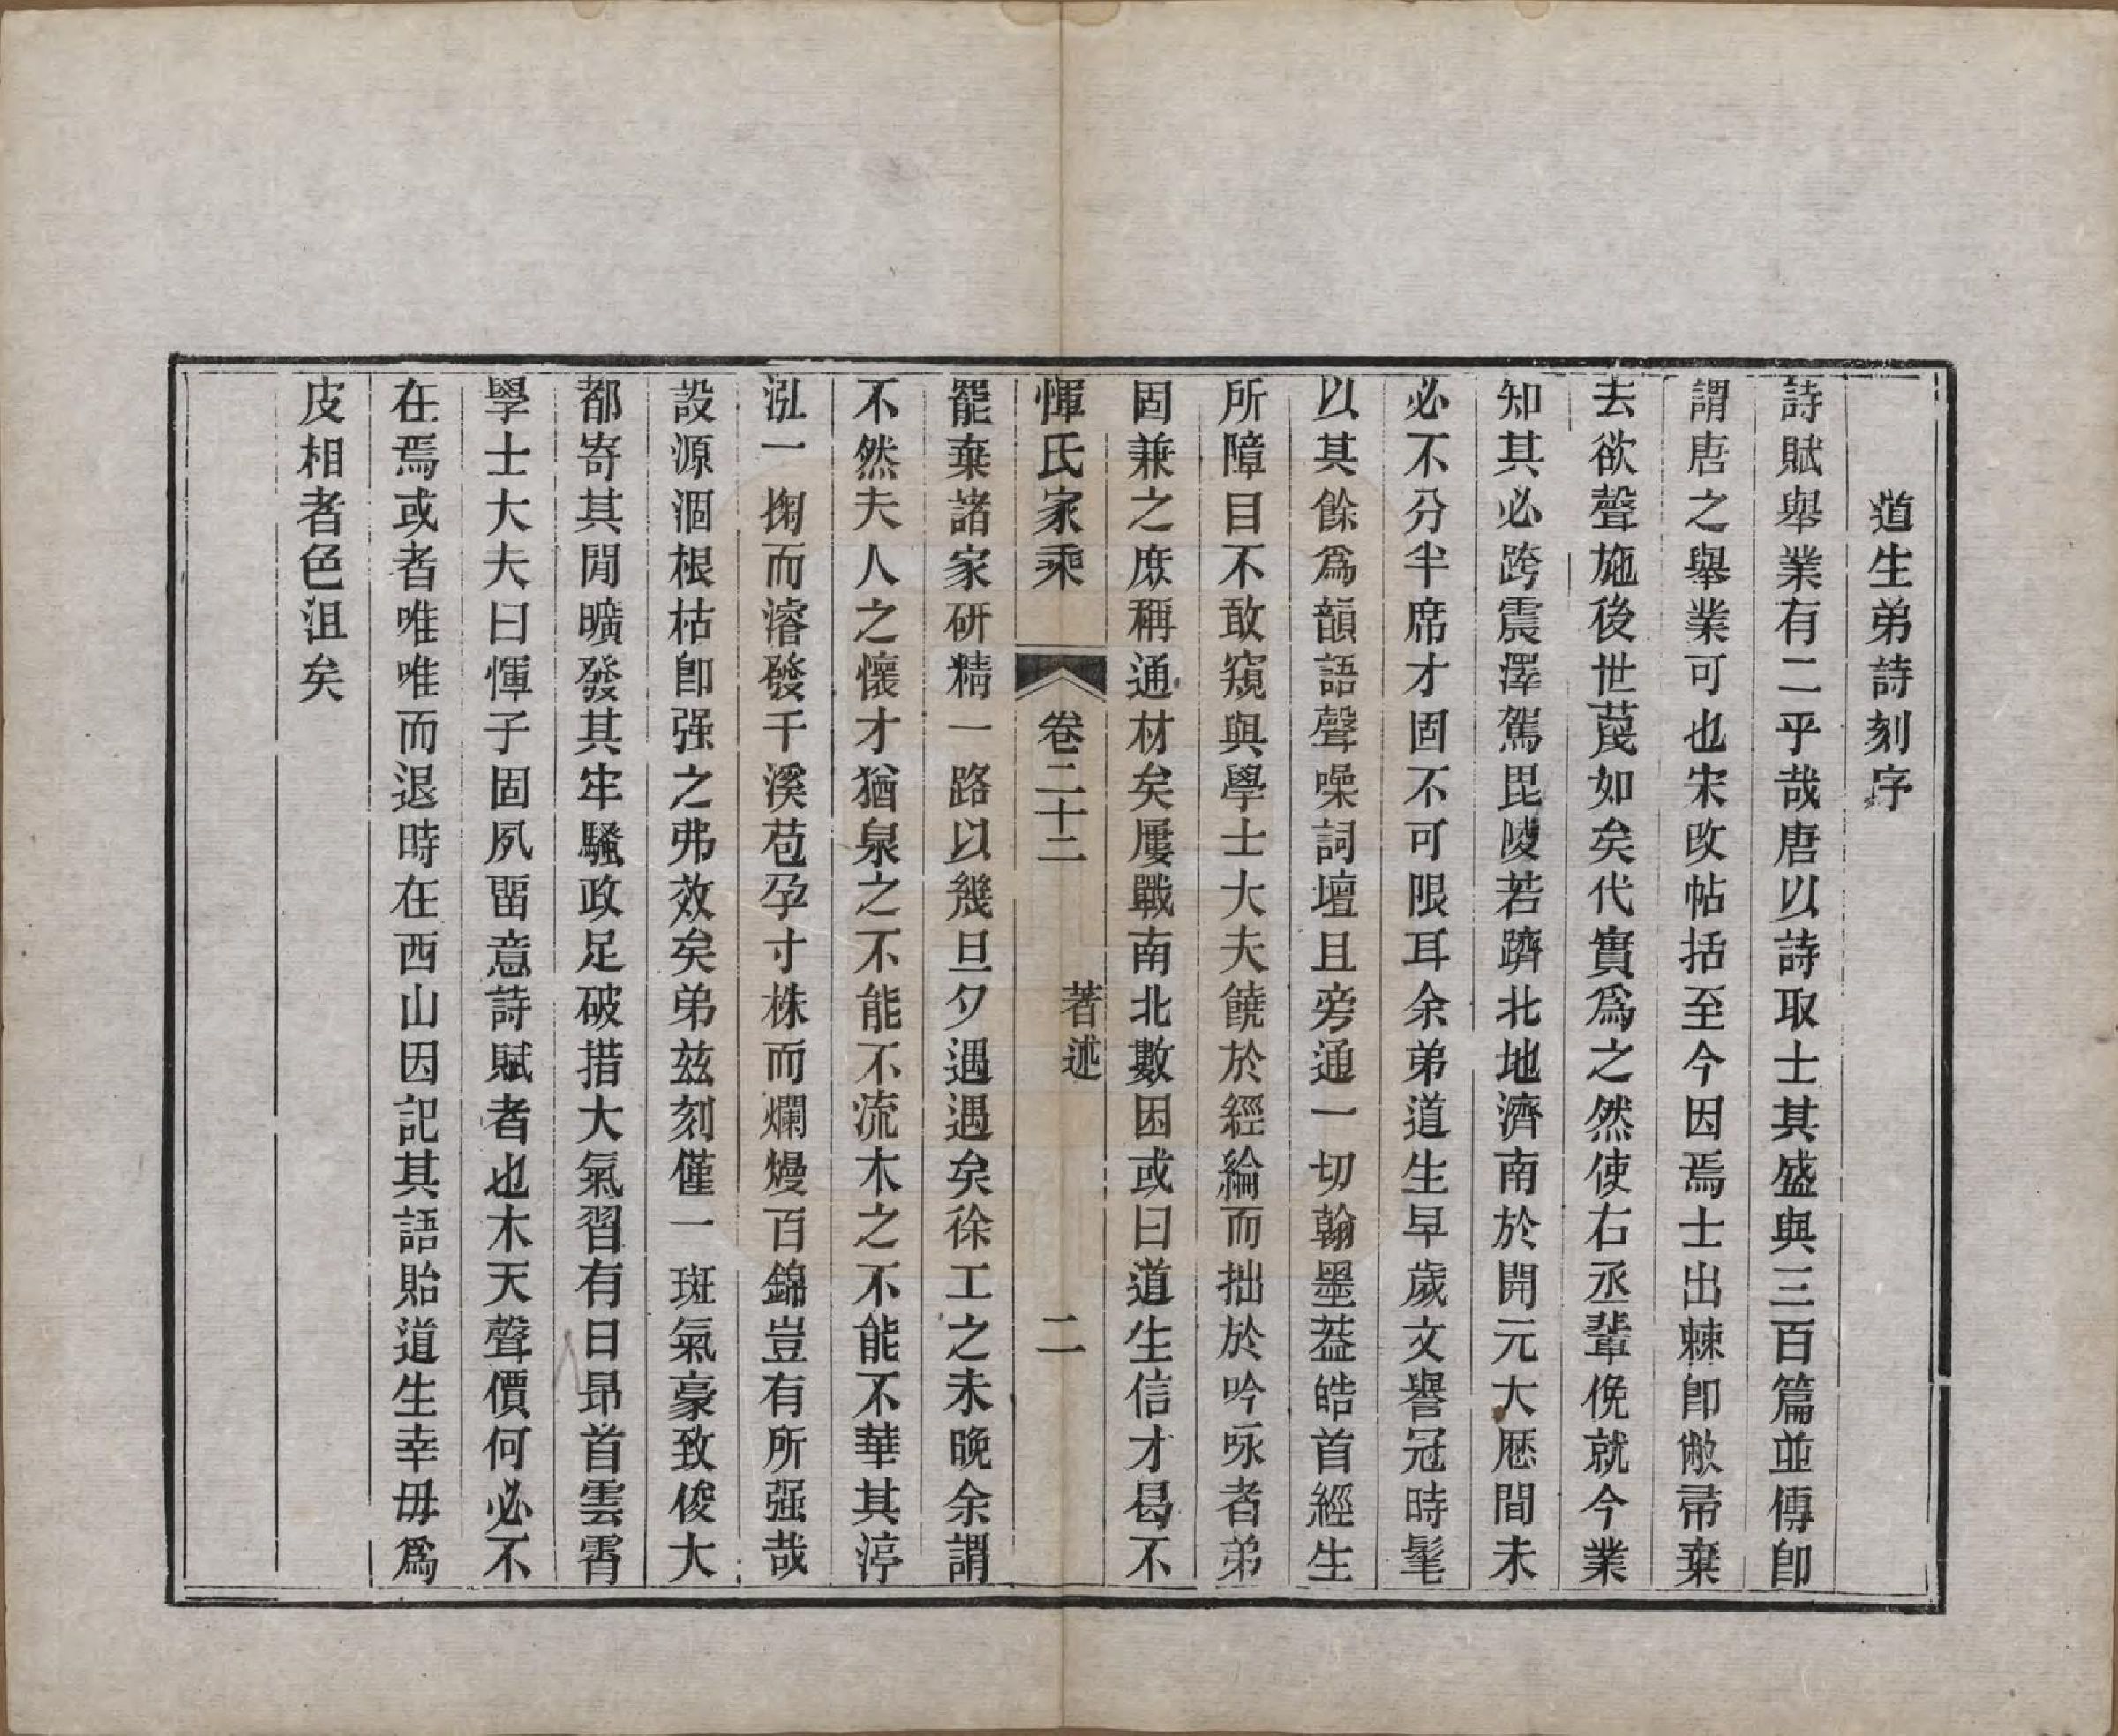 道生弟詩刻序
詩賦舉業有二乎哉唐以詩取士其盛與三百篇並傳卽
謂唐之舉業可也宋改帖括至今因焉士出棘卽敝帚棄
去欲聲施後世蔑如矣代實爲之然使右丞輩俛就今業
知其必跨震澤駕毘陵若躋北地濟南於開元大厯間未
必不分半席才固不可限耳余弟道生早歲文譽冠時髦
以其餘爲韻語聲噪詞壇且旁通一切翰墨葢皓首經生
所障目不敢窺與學士大夫饒於經綸而拙於吟咏者弟
固兼之庶稱通材矣屢戰南北數困或曰道生信才曷不
惲氏家乘 卷二十二 著述 二
罷棄諸家研精一路以幾旦夕遇遇矣徐工之未晚余謂
不然夫人之懷才猶泉之不能不流木之不能不華其渟
泓一掬而濬發千溪苞孕寸株而爛熳百錦豈有所强哉
設源涸根枯卽强之弗效矣弟茲刻僅一斑氣豪致俊大
都寄其閒曠發其牢騷政足破措大氣習有日昂首雲霄
學士大夫曰惲子固夙畱意詩賦者也木天聲價何必不
在焉或者唯唯而退時在西山因記其語貽道生幸毋爲
皮相者色沮矣